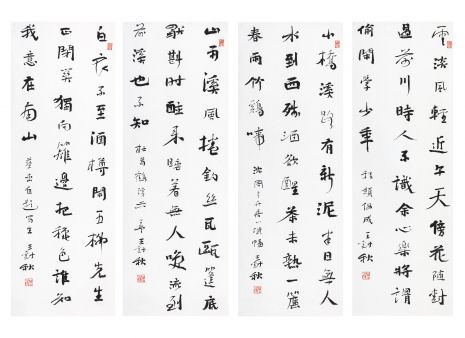 雲淡風輕近午天傍花隨柳
過前川時人不識余心樂將謂
偷閒學少年 程顥偶成 王
小橋溪路有新泥半日無人
水到西殘酒欲醒茶未熟一簾
春雨竹鷄啼 沈周 秋
山雨溪風捲釣絲瓦甌篷底
獨斟時醉來睡著無人喚流到
前溪也不知 杜荀鶴溪 王 秋
白衣不至酒樽閒五柳先生
正閉關獨向籬邊把秋色誰知
我意在南山 唐寅自題 王 秋